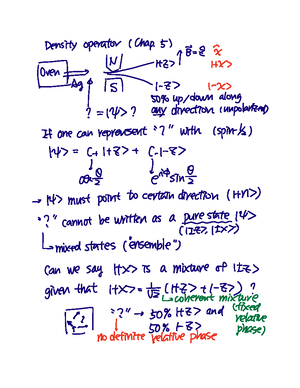 Density operator (Chap. 5)
B=ẑ x̂
Oven N |+z> |+x>
Ag S |-z> |-x>
50% up/down along
? = |ψ> ? any direction (unpolarized)
If one can represent "?" with (spin-1/2)
|ψ> = C+|+z> + C-|-z>
cos θ/2 e^iφ sin θ/2
→ |ψ> must point to certain direction (|+n>)
"?" cannot be written as a pure state |ψ>
(|±z>, |±x>)
mixed states ("ensemble")
Can we say |+x> is a mixture of |±z>
given that |+x> = 1/√2 (|+z> + |-z>) ?
coherent mixture
"?" → 50% |+z> and (fixed
50% |-z> relative
phase)
no definite relative phase